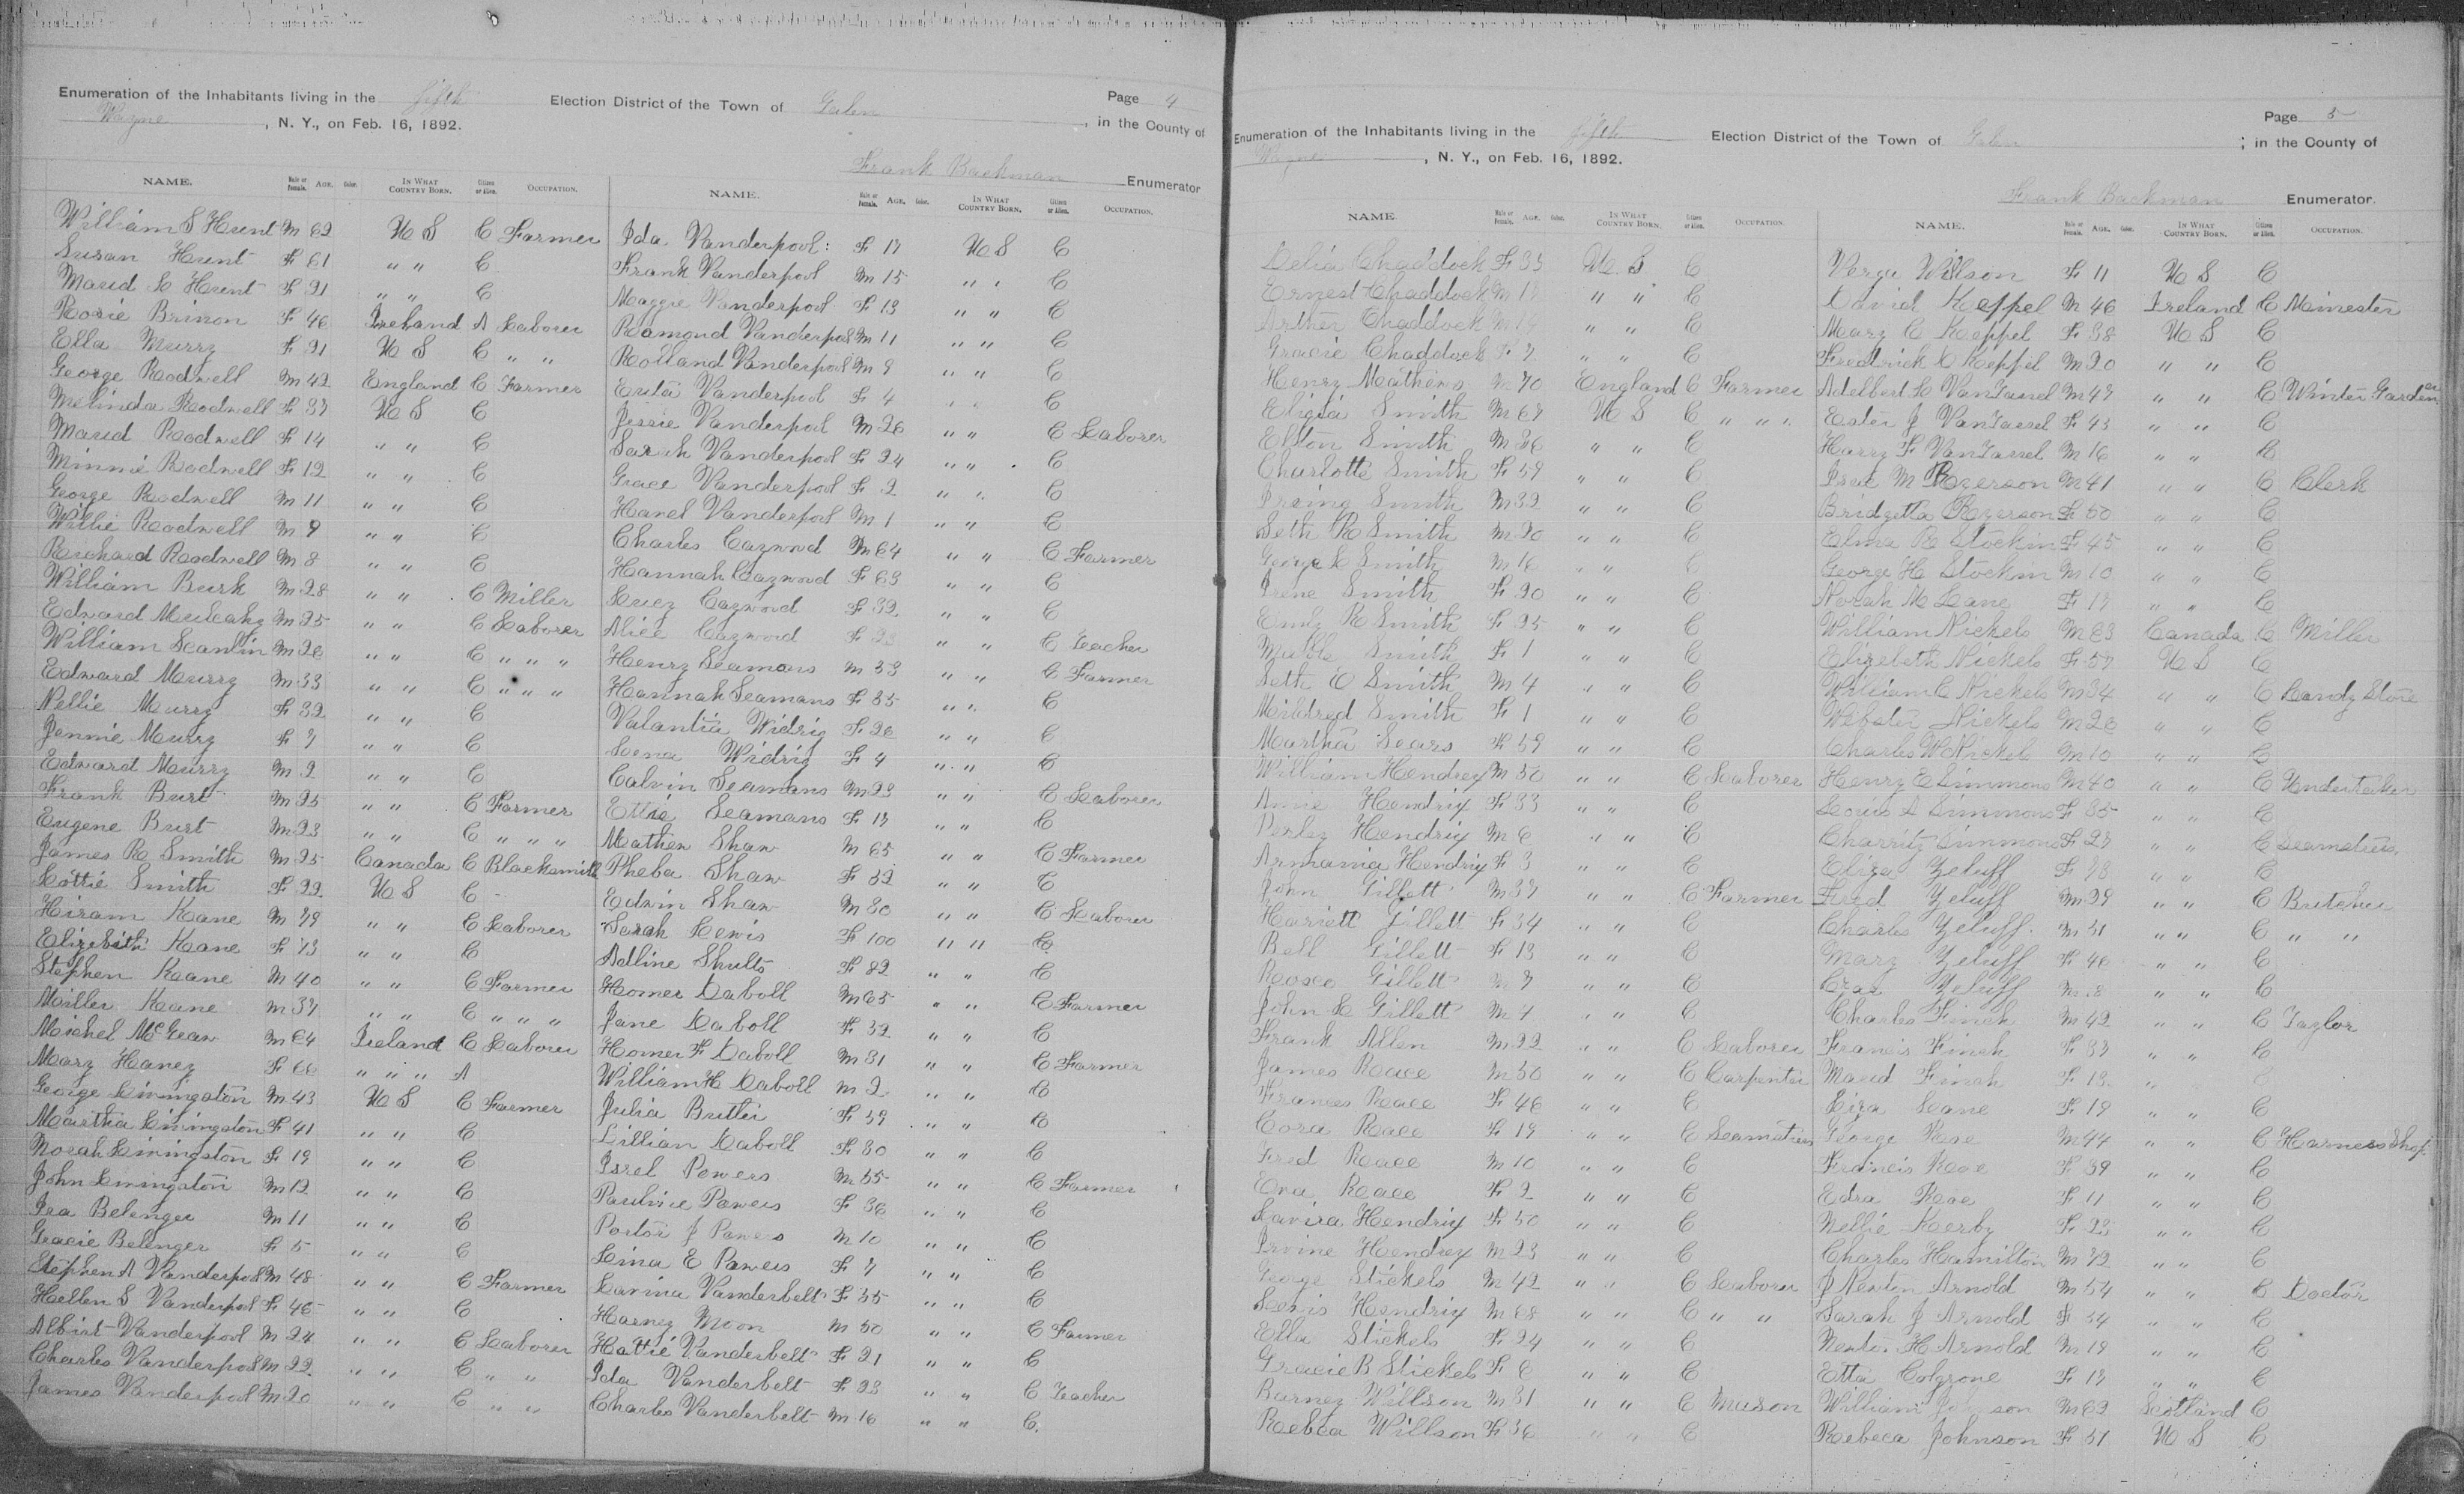 Enumeration of the Inhabitants living in the fifth Election District of the Town of Galen, in the County of
Wayne, N. Y., on Feb. 16, 1892.
Page 4
Frank Backman Enumerator
NAME. Male or Female. AGE. Color. IN WHAT COUNTRY BORN. Citizen or Alien. OCCUPATION.
William S Hunt M 62 U S C Farmer
Susan Hunt F 61 " " C
Maud L Hunt F 21 " " C
Rosie Brinon F 46 Ireland A Laborer
Ella Murry F 21 U S C " "
George Rodwell M 42 England C Farmer
Melinda Rodwell F 37 U S C
Maud Rodwell F 14 " " C
Minnie Rodwell F 12 " " C
George Rodwell M 11 " " C
Willie Rodwell M 9 " " C
Richard Rodwell M 8 " " C
William Burk M 28 " " C Miller
Edward Mulcahy M 25 " " C Laborer
William Scanlin M 26 " " C " " "
Edward Murry M 33 " " C " " "
Nellie Murry F 32 " " C
Jennie Murry F 7 " " C
Edward Murry M 2 " " C
Frank Burt M 25 " " C Farmer
Eugene Burt M 23 " " C " " "
James R Smith M 25 Canada C Blacksmith
Lottie Smith F 22 U S C
Hiram Kane M 79 " " C Laborer
Elizebith Kane F 73 " " C
Stephen Kane M 40 " " C Farmer
Miller Kane M 37 " " C " " "
Michel McGean M 64 Ireland C Laborer
Mary Haney F 66 " " " A
George Livingston M 43 U S C Farmer
Martha Livingston F 41 " " C
Norah Livingston F 19 " " C
John Livingston M 12 " " C
Ira Belenger M 11 " " C
Gracie Belenger F 5 " " C
Stephen A Vanderpool M 48 " " C Farmer
Hellen S Vanderpool F 46 " " C
Albirt Vanderpool M 24 " " C Laborer
Charles Vanderpool M 22 " " C " "
James Vanderpool M 20 " " C " "
NAME. Male or Female. AGE. Color. IN WHAT COUNTRY BORN. Citizen or Alien. OCCUPATION.
Ida Vanderpool F 17 U S C
Frank Vanderpool M 15 " " C
Maggie Vanderpool F 13 " " C
Romond Vanderpool M 11 " " C
Rolland Vanderpool M 9 " " C
Erita Vanderpool F 4 " " C
Jessie Vanderpool M 26 " " C Laborer
Sarah Vanderpool F 24 " " C
Grace Vanderpool F 2 " " C
Hanel Vanderpool M 1 " " C
Charles Caywood M 64 " " C Farmer
Hannah Caywood F 63 " " C
Lucy Caywood F 32 " " C
Alice Caywood F 23 " " C Teacher
Henry Seamans M 33 " " C Farmer
Hannah Seamans F 35 " " C
Valantia Widrig F 26 " " C
Lena Widrig F 4 " " C
Calvin Seamans M 23 " " C Laborer
Ettie Seamans F 17 " " C
Mathew Shaw M 65 " " C Farmer
Pheba Shaw F 52 " " C
Edwin Shaw M 30 " " C Laborer
Sarah Lewis F 100 " " C
Adline Shults F 82 " " C
Homer Daboll M 65 " " C Farmer
Jane Daboll F 52 " " C
Homer F Daboll M 31 " " C Farmer
William H Daboll M 2 " " C
Julia Butler F 59 " " C
Lillian Daboll F 30 " " C
Isrel Powers M 55 " " C Farmer
Paulnice Powers F 36 " " C
Portor J Powers M 10 " " C
Lina E Powers F 7 " " C
Lavina Vanderbelt F 55 " " C
Harney Moon M 50 " " C Farmer
Hattie Vanderbelt F 21 " " C
Ida Vanderbelt F 23 " " C Teacher
Charles Vanderbelt M 16 " " C
Enumeration of the Inhabitants living in the fifth Election District of the Town of Galen; in the County of
Wayne, N. Y., on Feb. 16, 1892.
Page 5
Frank Backman Enumerator.
NAME. Male or Female. AGE. Color. IN WHAT COUNTRY BORN. Citizen or Alien. OCCUPATION.
Delia Chaddock F 35 U. S C
Ernest Chaddock M 17 " " C
Arther Chaddock M 14 " " C
Gracie Chaddock F 7 " " C
Henry Mathews M 70 England C Farmer
Eligia Smith M 67 U S C " " "
Elton Smith M 36 " " C
Charlotte Smith F 59 " " C
Irving Smith M 32 " " C
Seth R Smith M 20 " " C
George L Smith M 16 " " C
Irene Smith F 20 " " C
Emly R Smith F 25 " " C
Mable Smith F 1 " " C
Seth E Smith M 4 " " C
Mildred Smith F 1 " " C
Martha Sears F 59 " " C
William Hendrex M 50 " " C Laborer
Annie Hendrix F 33 " " C
Perley Hendrix M 6 " " C
Armania Hendrix F 3 " " C
John Gillett M 37 " " C Farmer
Hariett Gillett F 34 " " C
Bell Gillett F 13 " " C
Rosco Gillett M 7 " " C
John L Gillett M 4 " " C
Frank Allen M 22 " " C Laborer
James Race M 50 " " C Carpenter
Frances Race F 46 " " C
Cora Race F 19 " " C Seamstress
Fred Race M 10 " " C
Eva Race F 2 " " C
Lavira Hendrix F 50 " " C
Irvine Hendrex M 23 " " C
George Stickels M 42 " " C Laborer
Lewis Hendrix M 68 " " C " "
Ella Stickels F 24 " " C
Gracie B Stickels F 6 " " C
Barney Willson M 31 " " C Mason
Rebca Willson F 36 " " C
NAME. Male or Female. AGE. Color. IN WHAT COUNTRY BORN. Citizen or Alien. OCCUPATION.
Verga Willson F 11 U S C
David Keppel M 46 Ireland C Minester
Mary C Keppel F 38 U S C
Fredrick C Keppel M 20 " " C
Adelbert L VanTassel M 47 " " C Winter Gardener
Ester J VanTassel F 43 " " C
Harry F VanTassel M 16 " " C
Irea M Rogerson M 41 " " C Clerk
Bridgetta Rogerson F 50 " " C
Elma R Stockin F 45 " " C
George H Stockin M 10 " " C
Norah M Lane F 17 " " C
William Nickels M 63 Canada C Miller
Elizebeth Nickels F 57 U S C
William C Nickels M 34 " " C Candy Store
Webster Nickels M 26 " " C
Charles W Nickels M 10 " " C
Henry E Simmons M 40 " " C Undertaker
Louis A Simmons F 35 " " C
Charrity Simmons F 27 " " C Seamstress
Eliza Zeluff F 78 " " C
Fred Zeluff M 29 " " C Butcher
Charles Zeluff M 51 " " C " "
Mary Zeluff F 46 " " C
Cray Zeluff M 8 " " C
Charles Finch M 42 " " C Taylor
Francis Finch F 37 " " C
Maud Finch F 13 " C
Liza Lane F 19 " " C
George Roe M 44 " " C Harness Shop
Francis Roe F 39 " " C
Edra Roe F 11 " " C
Nellie Kerby F 23 " " C
Charles Hamilton M 72 " " C
J Newton Arnold M 54 " " C Doctor
Sarah J Arnold F 54 " " C
Newton H Arnold M 19 " " C
Etta Colgrone F 17 " " C
William son M 62 Scotland C
Rebeca Johnson F 51 U S C